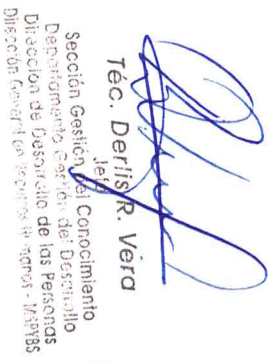 Téc. Derlis R. Vera
Jefe
Sección Gestión del Conocimiento
Departamento Gestión del Desarrollo
Dirección de Desarrollo de las Personas
Dirección General de Recursos Humanos - MSPYBS